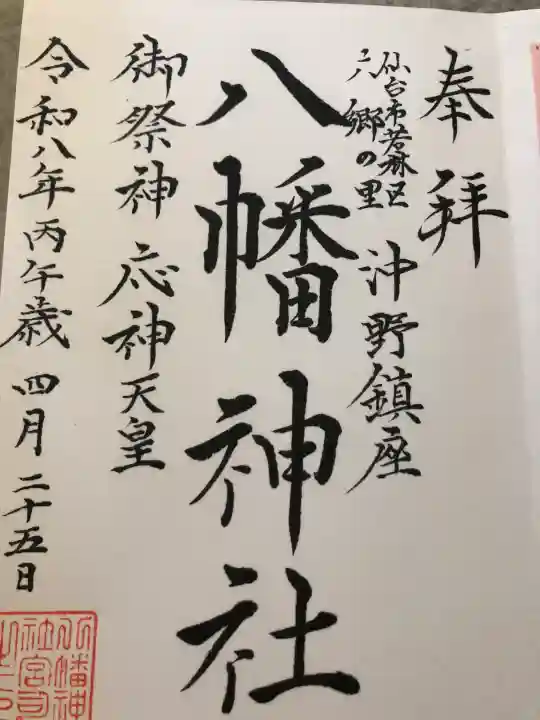 奉拝
仙台市若林区
六郷の里
沖野鎮座
八幡神社
御祭神 応神天皇
令和八年丙午歳 四月二十五日
八幡神
社宮司